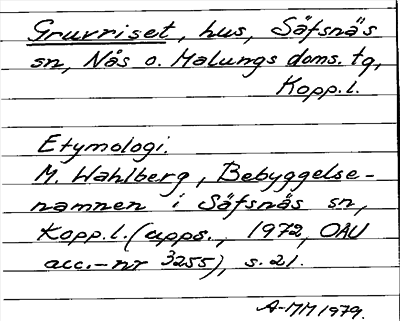 Gruvriset, hus, Säfsnäs
sn, Nås o. Malungs doms. tg,
Kopp.l.
Etymologi.
M. Wahlberg, Bebyggelse-
namnen i Säfsnäs sn,
Kopp.l. (upps., 1972, OAU
acc.-nr 3255), s. 21.
A-MM 1979.